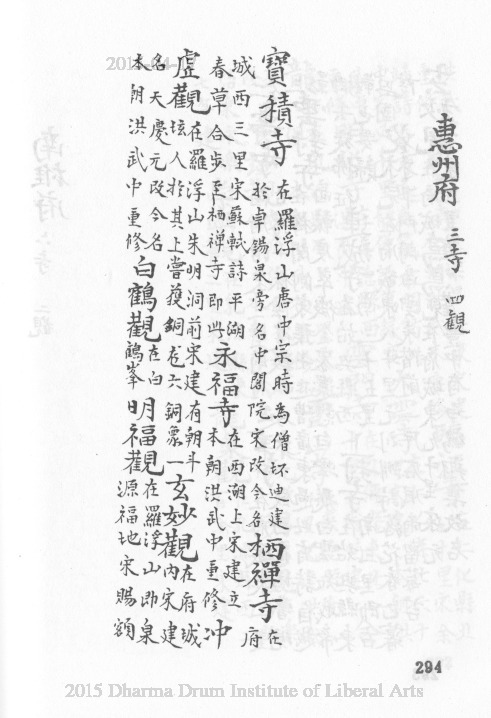 惠州府 三寺 四觀
寶積寺 在羅浮山唐中宗時為僧怀迪建 於卓錫泉旁名中閣院宋改今名 栖禪寺 在府
城西三里宋蘇軾詩平湖 春草合步至栖禪寺即此 永福寺 在西湖上宋建立 本朝洪武中重修 冲
虛觀 在羅浮山朱明洞前宋建有朝斗 坛人於其上嘗获銅龙六銅魚一 玄妙觀 在府城 内宋建
名天慶元改今名 本朝洪武中重修 白鶴觀 在白 鶴峯 明福觀 在羅浮山即泉 源福地宋賜額
294
2015 Dharma Drum Institute of Liberal Arts